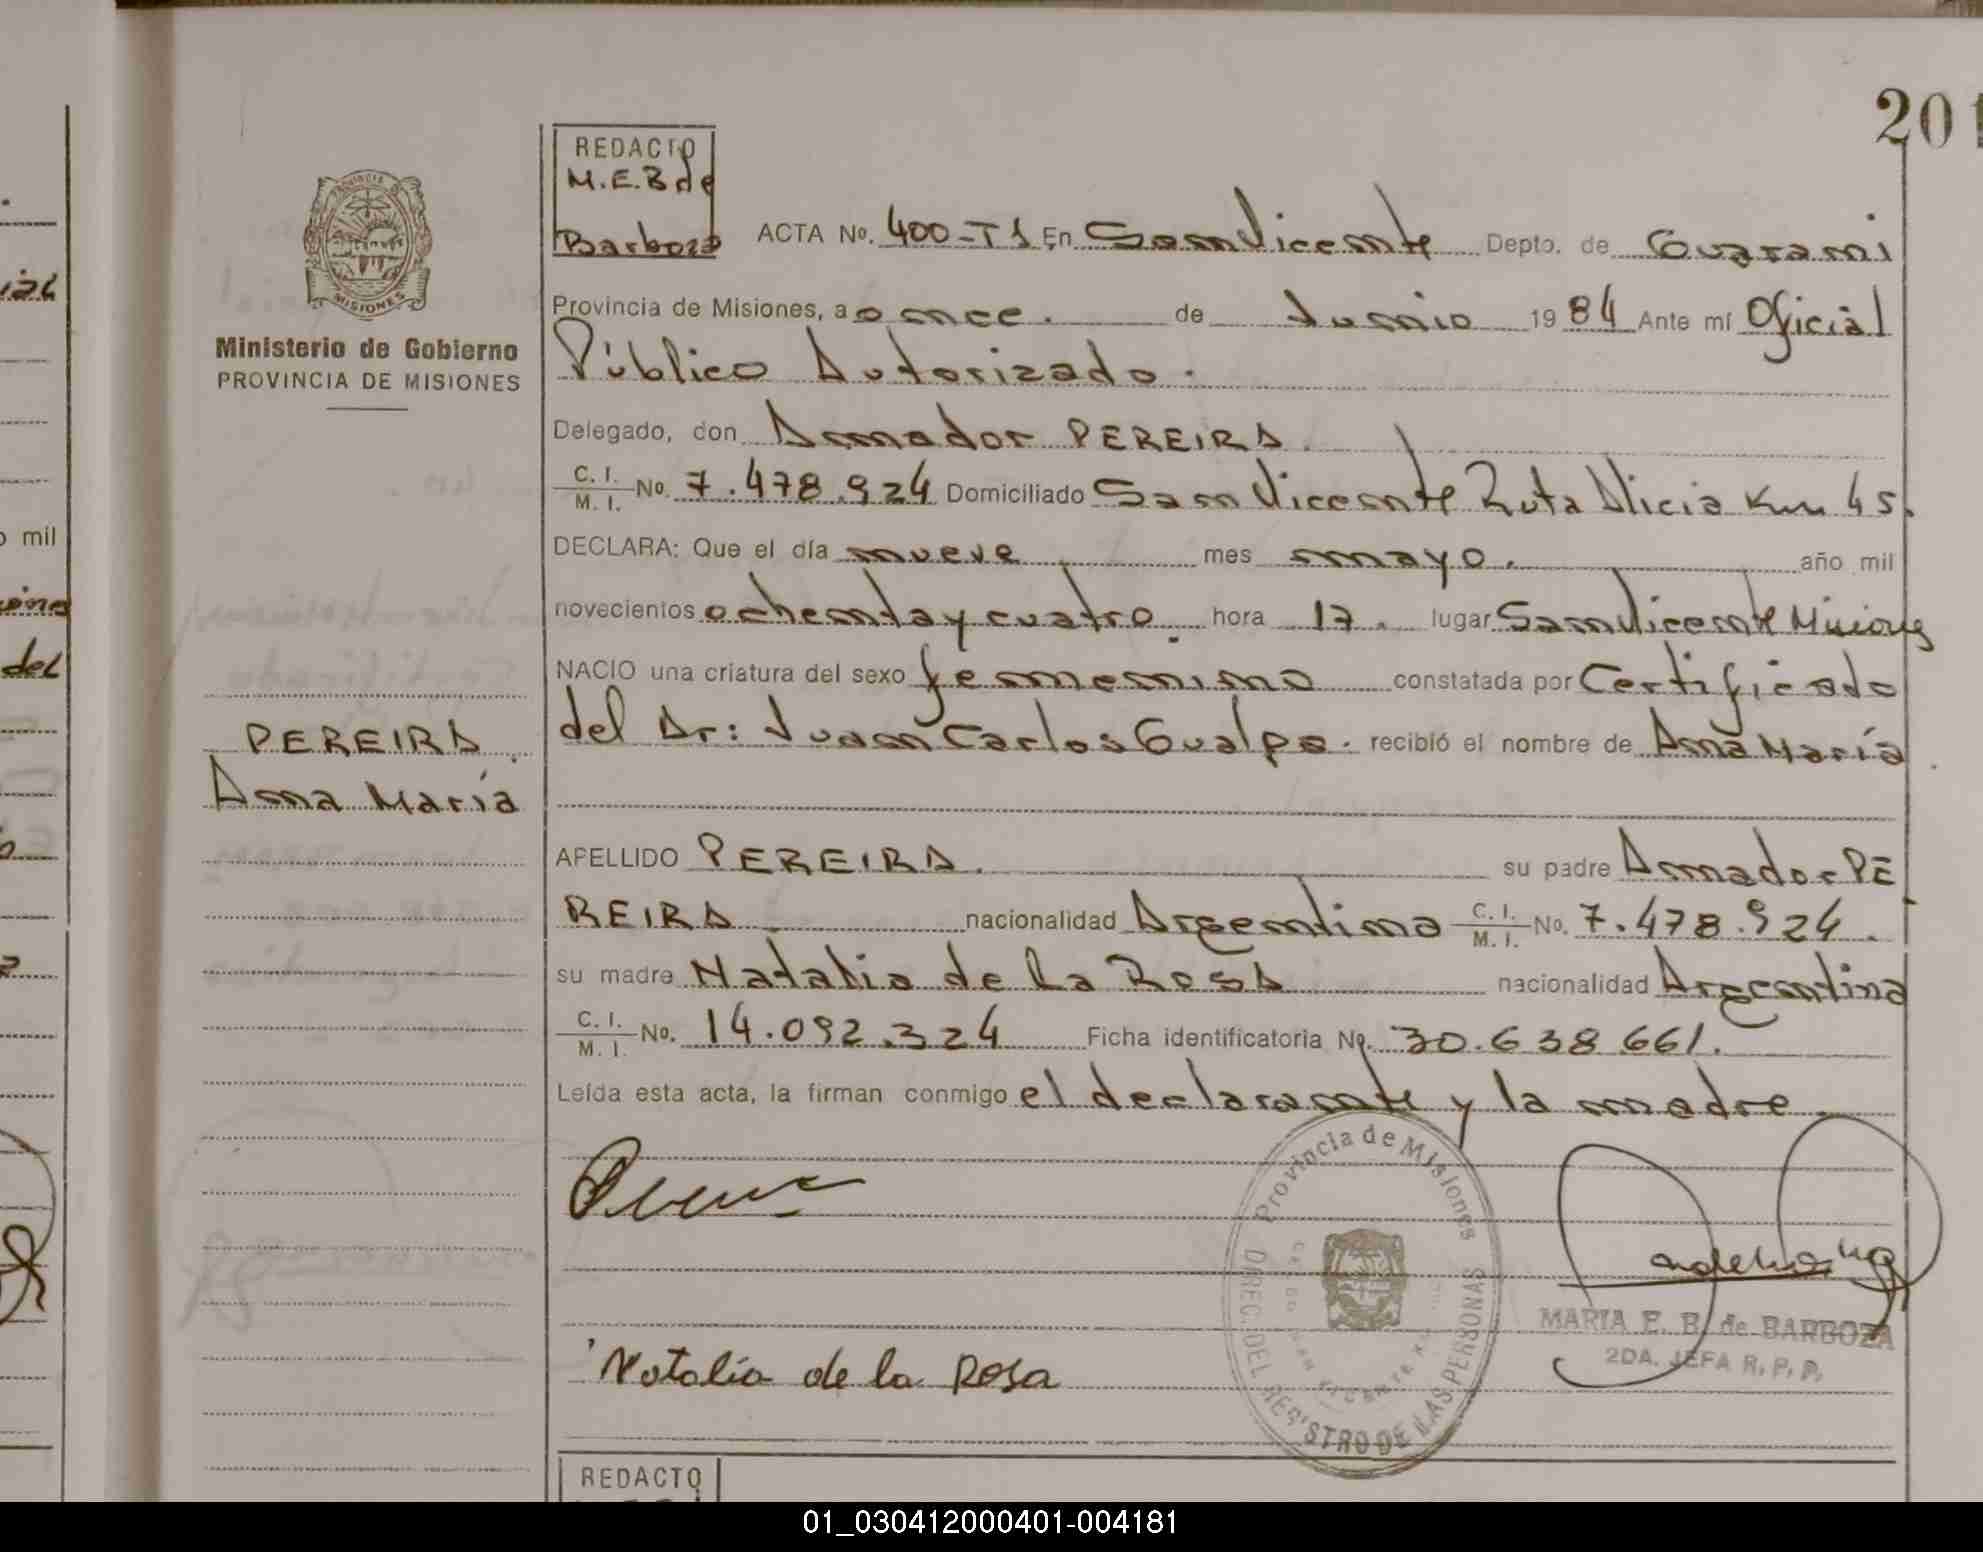 201
REDACTO
M.E.B de
Barboza
ACTA No. 400-T1 En San Vicente Depto. de Guarani
Provincia de Misiones, a once. de Junio 1984 Ante mí Oficial
Público Autorizado.
Delegado, don Amador PEREIRA.
C. I. / M. I. No. 7.478.924 Domiciliado San Vicente Ruta Alicia Km 45.
DECLARA: Que el día nueve mes mayo. año mil
novecientos ochenta y cuatro. hora 17. lugar San Vicente Misiones
NACIO una criatura del sexo femenino constatada por Certificado
del Dr: Juan Carlos Gualpa. recibió el nombre de Ana María
APELLIDO PEREIRA. su padre Amador PE
REIRA nacionalidad Argentina C. I. / M. I. No. 7.478.924.
su madre Natalia de la Rosa nacionalidad Argentina
C. I. / M. I. No. 14.092.324 Ficha identificatoria No. 30.638.661.
Leída esta acta, la firman conmigo el declarante y la madre.
Natalia de la Rosa
Provincia de Misiones
DIREC. DEL REGISTRO DE LAS PERSONAS
MARIA E. B. de BARBOZA
2DA. JEFA R. P. P.
PROVINCIA DE
MISIONES
Ministerio de Gobierno
PROVINCIA DE MISIONES
PEREIRA
Ana María
mil
del
REDACTO
01_030412000401-004181